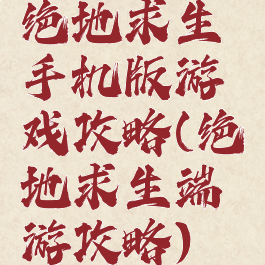 绝地求生
手机版游
戏攻略(绝
地求生端
游攻略)